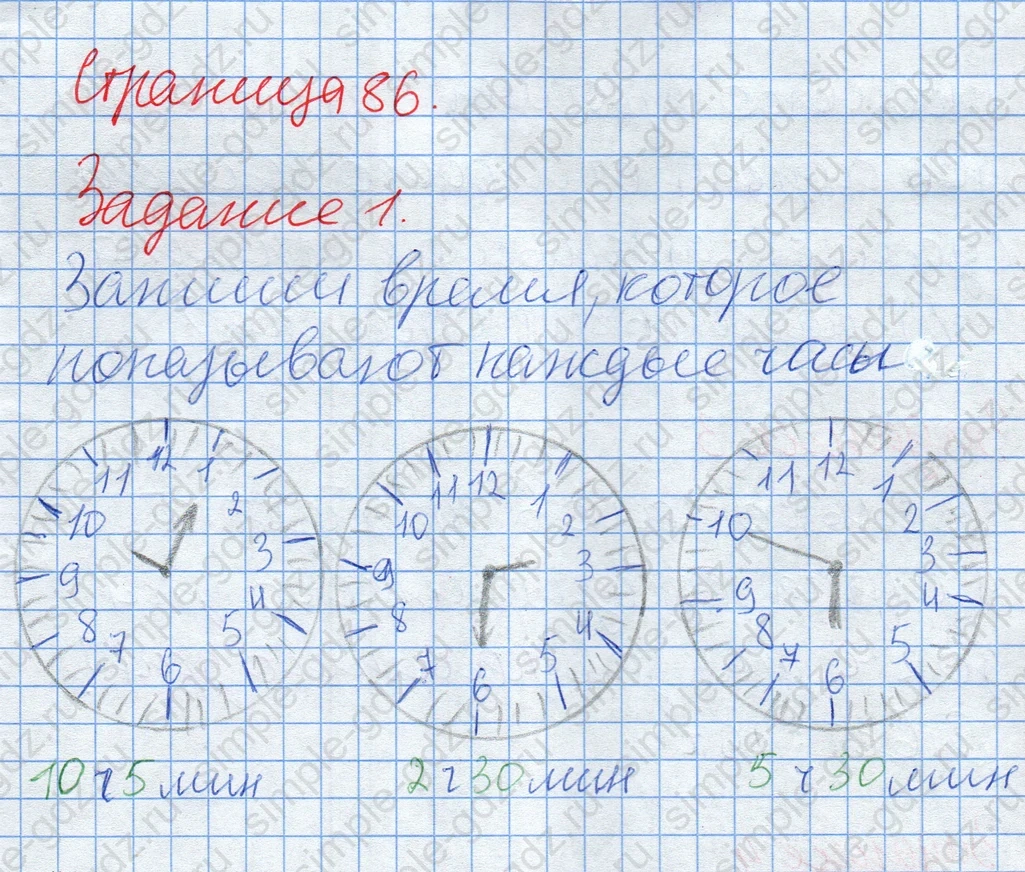 Страница 86.
Задание 1.
Запиши время, которое
показывают каждые часы
12 1 2 3 4 5 6 7 8 9 10 11
12 1 2 3 4 5 6 7 8 9 10 11
12 1 2 3 4 5 6 7 8 9 10 11
10 ч 5 мин 2 ч 30 мин 5 ч 30 мин
simple-gdz.ru